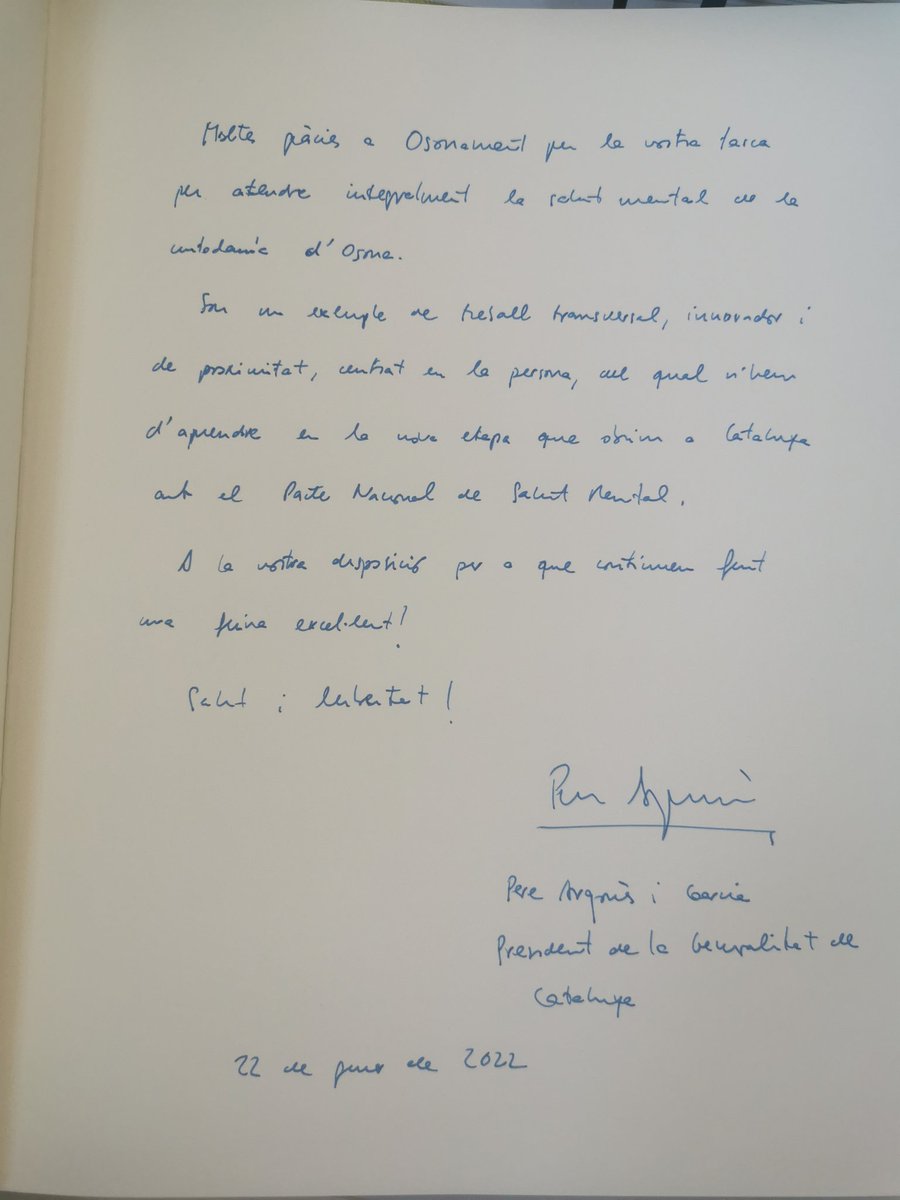 Moltes gràcies a Osonament per la vostra tasca
per atendre integralment la salut mental de la
ciutadania d'Osona.
Sou un exemple de treball transversal, innovador i
de proximitat, centrat en la persona, del qual n'hem
d'aprendre en la nova etapa que obrim a Catalunya
amb el Pacte Nacional de Salut Mental.
A la vostra disposició per a que continueu fent
una feina excel·lent!
Salut i llibertat!
Pere Aragonès
Pere Aragonès i Garcia
President de la Generalitat de
Catalunya
22 de juny de 2022